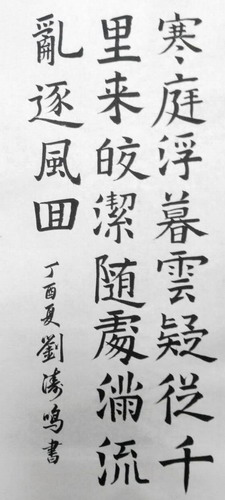 寒庭浮暮雲疑從千
里来皎潔随處滿流
亂逐風回
丁酉夏劉濤鳴書